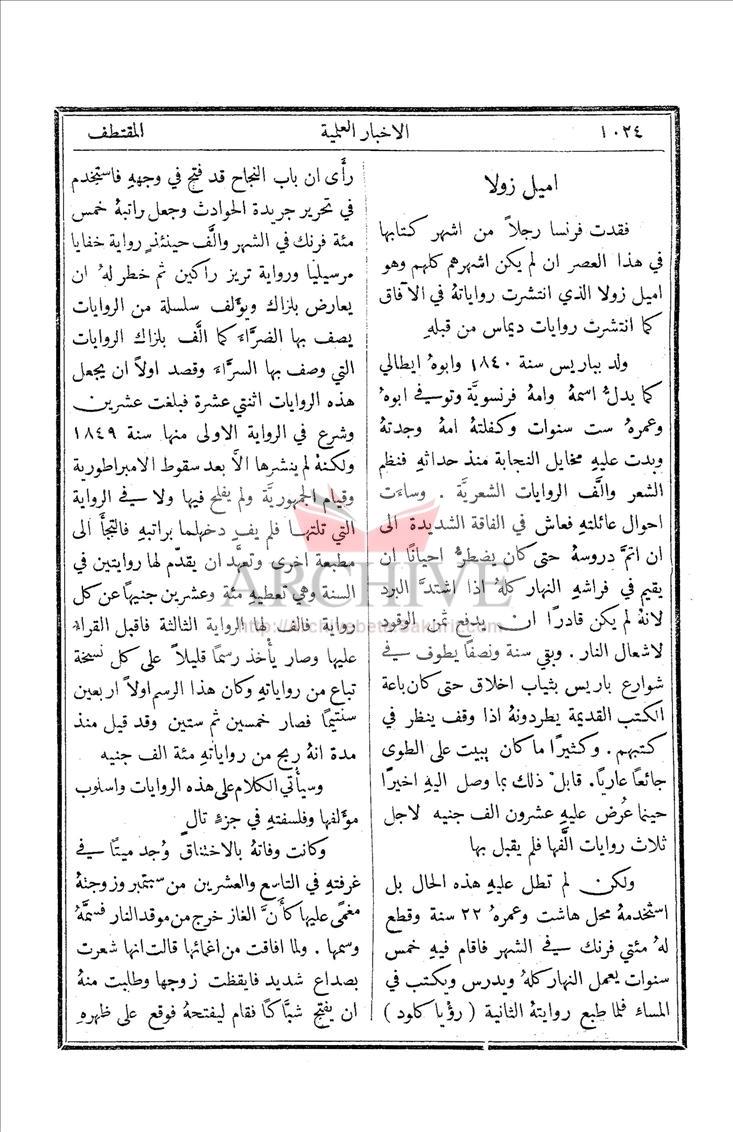 ١٠٢٤
الاخبار العلمية
المقتطف
اميل زولا
فقدت فرنسا رجلاً من اشهر كتابها
في هذا العصر ان لم يكن اشهرهم كلهم وهو
اميل زولا الذي انتشرت رواياتهُ في الآفاق
كما انتشرت روايات ديماس من قبلهِ
ولد بباريس سنة ١٨٤٠ وابوهُ ايطالي
كما يدلُّ اسمهُ وامهُ فرنسويَّة وتوفي ابوهُ
وعمرهُ ست سنوات وكفلتهُ امهُ وجدتهُ
وبدت عليهِ مخايل النجابة منذ حداثتهِ فنظم
الشعر والَّف الروايات الشعريَّة . وساءَت
احوال عائلتهِ فعاش في الفاقة الشديدة الى
ان اتمَّ دروسهُ حتى كان يضطرُّ احيانًا ان
يقيم في فراشهِ النهار كلهُ اذا اشتدَّ البرد
لانهُ لم يكن قادرًا ان يدفع ثمن الوقود
لاشعال النار . وبقي سنة ونصفًا يطوف في
شوارع باريس بثياب اخلاق حتى كان باعة
الكتب القديمة يطردونهُ اذا وقف ينظر في
كتبهم . وكثيرًا ما كان يبيت على الطوى
جائعًا عاريًا. قابل ذلك بما وصل اليهِ اخيرًا
حينما عُرض عليهِ عشرون الف جنيه لاجل
ثلاث روايات الَّفها فلم يقبل بها
ولكن لم تطل عليهِ هذه الحال بل
استخدمهُ محل هاشت وعمرهُ ٢٢ سنة وقطع
لهُ مئتي فرنك في الشهر فاقام فيهِ خمس
سنوات يعمل النهار كلهُ ويدرس ويكتب في
المساء فلما طبع روايتهُ الثانية ( رؤيا كلود )
رأى ان باب النجاح قد فتح في وجههِ فاستخدم
في تحرير جريدة الحوادث وجعل راتبهُ خمس
مئة فرنك في الشهر والَّف حينئذٍ رواية خفايا
مرسيليا ورواية تريز راكين ثم خطر لهُ ان
يعارض بلزاك ويؤلف سلسلة من الروايات
يصف بها الضرَّاء كما الَّف بلزاك الروايات
التي وصف بها السرَّاء وقصد اولاً ان يجعل
هذه الروايات اثنتي عشرة فبلغت عشرين
وشرع في الرواية الاولى منها سنة ١٨٤٩
ولكنهُ لم ينشرها الاَّ بعد سقوط الامبراطورية
وقيام الجمهوريَّة ولم يفلح فيها ولا في الرواية
التي تلتها فلم يفِ دخلهما براتبهِ فالتجأَ الى
مطبعة اخرى وتعهَّد ان يقدّم لها روايتين في
السنة وهي تعطيهِ مئة وعشرين جنيهًا عن كل
رواية فالف لها الرواية الثالثة فاقبل القراءُ
عليها وصار يأْخذ رسمًا قليلاً على كل نسخة
تباع من رواياتهِ وكان هذا الرسم اولاً اربعين
سنتيمًا فصار خمسين ثم ستين وقد قيل منذ
مدة انهُ ربح من رواياتهِ مئة الف جنيه
وسيأتي الكلام على هذه الروايات واسلوب
مؤلفها وفلسفتهِ في جزءٍ تال
وكانت وفاتهُ بالاختناق وُجد ميتًا في
غرفتهِ في التاسع والعشرين من سبتمبر وزوجتهُ
مغمًى عليها كأَنَّ الغاز خرج من موقد النار فسمَّهُ
وسمها . ولما افاقت من اغمائها قالت انها شعرت
بصداع شديد فايقظت زوجها وطلبت منهُ
ان يفتح شبَّاكًا فقام ليفتحهُ فوقع على ظهرهِ
ARCHIVE